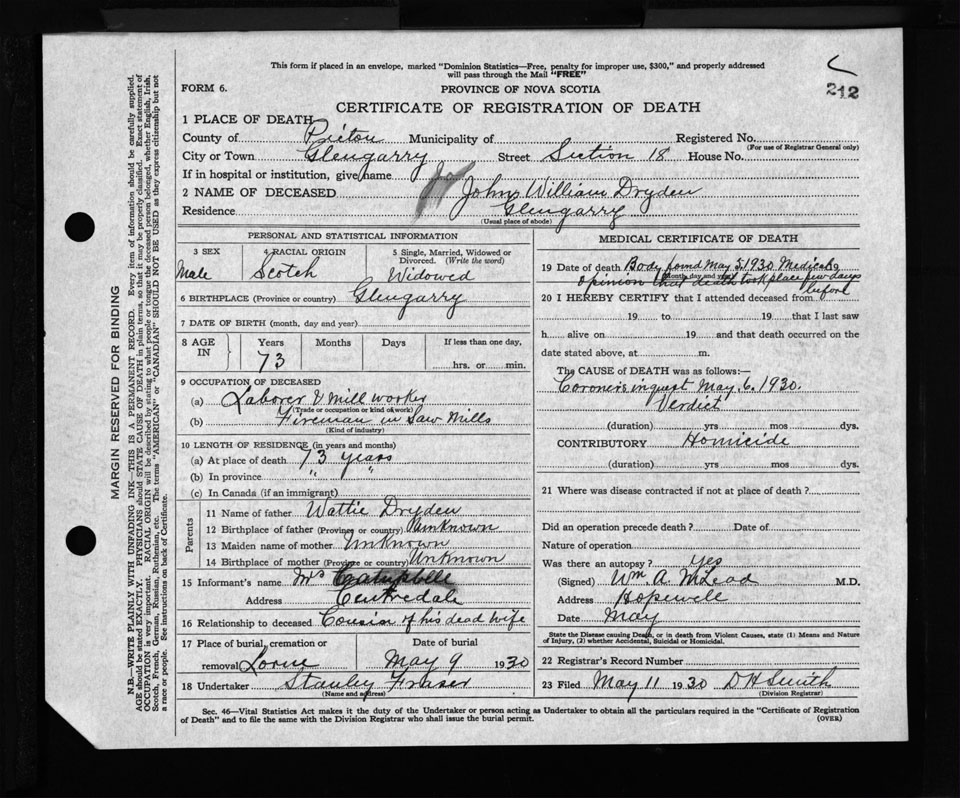 This form if placed in an envelope, marked "Dominion Statistics—Free, penalty for improper use, $300," and properly addressed
will pass through the Mail "FREE"
212
FORM 6.
PROVINCE OF NOVA SCOTIA
CERTIFICATE OF REGISTRATION OF DEATH
1 PLACE OF DEATH
County of Pictou Municipality of Registered No.
(For use of Registrar General only)
City or Town Glengarry Street Section 18 House No.
If in hospital or institution, give name
2 NAME OF DECEASED John William Dryden
Residence Glengarry
(Usual place of abode)
PERSONAL AND STATISTICAL INFORMATION
3 SEX 4 RACIAL ORIGIN 5 Single, Married, Widowed or
Divorced. (Write the word)
Male Scotch Widowed
6 BIRTHPLACE (Province or country) Glengarry
7 DATE OF BIRTH (month, day and year)
8 AGE IN Years Months Days If less than one day,
73 hrs. or min.
9 OCCUPATION OF DECEASED
(a) Laborer & Mill worker
(Trade or occupation or kind of work)
(b) Fireman in Saw Mills
(Kind of industry)
10 LENGTH OF RESIDENCE (in years and months)
(a) At place of death 73 years
(b) In province " "
(c) In Canada (if an immigrant)
Parents
11 Name of father Wattie Dryden
12 Birthplace of father (Province or country) Unknown
13 Maiden name of mother Unknown
14 Birthplace of mother (Province or country) Unknown
15 Informant's name Mrs
Address Centredale
16 Relationship to deceased Cousin of his dead wife
17 Place of burial, cremation or Date of burial
removal Lorne May 9 1930
18 Undertaker Stanley Fraser
(Name and address)
MEDICAL CERTIFICATE OF DEATH
19 Date of death Body found May 5 1930 Medical
(Month, day and year)
opinion that death took place few days
before
20 I HEREBY CERTIFY that I attended deceased from
19 to 19 that I last saw
h alive on 19 and that death occurred on the
date stated above, at m.
The CAUSE OF DEATH was as follows:—
Coroners inquest May, 6, 1930.
Verdict
(duration) yrs mos dys.
CONTRIBUTORY Homicide
(duration) yrs mos dys.
21 Where was disease contracted if not at place of death?
Did an operation precede death? Date of
Nature of operation
Was there an autopsy? Yes
(Signed) Wm. A. McLeod M.D.
Address Hopewell
Date May
State the Disease causing Death, or in death from Violent Causes, state (1) Means and Nature
of Injury, (2) whether Accidental, Suicidal or Homicidal.
22 Registrar's Record Number
23 Filed May 11 1930 D H Smith
(Division Registrar)
Sec. 46—Vital Statistics Act makes it the duty of the Undertaker or person acting as Undertaker to obtain all the particulars required in the "Certificate of Registration
of Death" and to file the same with the Division Registrar who shall issue the burial permit.
(OVER)
MARGIN RESERVED FOR BINDING
N.B.—WRITE PLAINLY WITH UNFADING INK—THIS IS A PERMANENT RECORD. Every item of information should be carefully supplied.
AGE should be stated EXACTLY. PHYSICIANS should STATE CAUSE OF DEATH in plain terms, so that it may be properly classified. Exact statement of
OCCUPATION is very important. RACIAL ORIGIN will be described by stating to what people or tongue the deceased person belonged, whether English, Irish,
Scotch, French, German, Russian, Ruthenian, etc. The terms "AMERICAN" or "CANADIAN" SHOULD NOT BE USED as they express citizenship but not
a race or people. See instructions on back of Certificate.